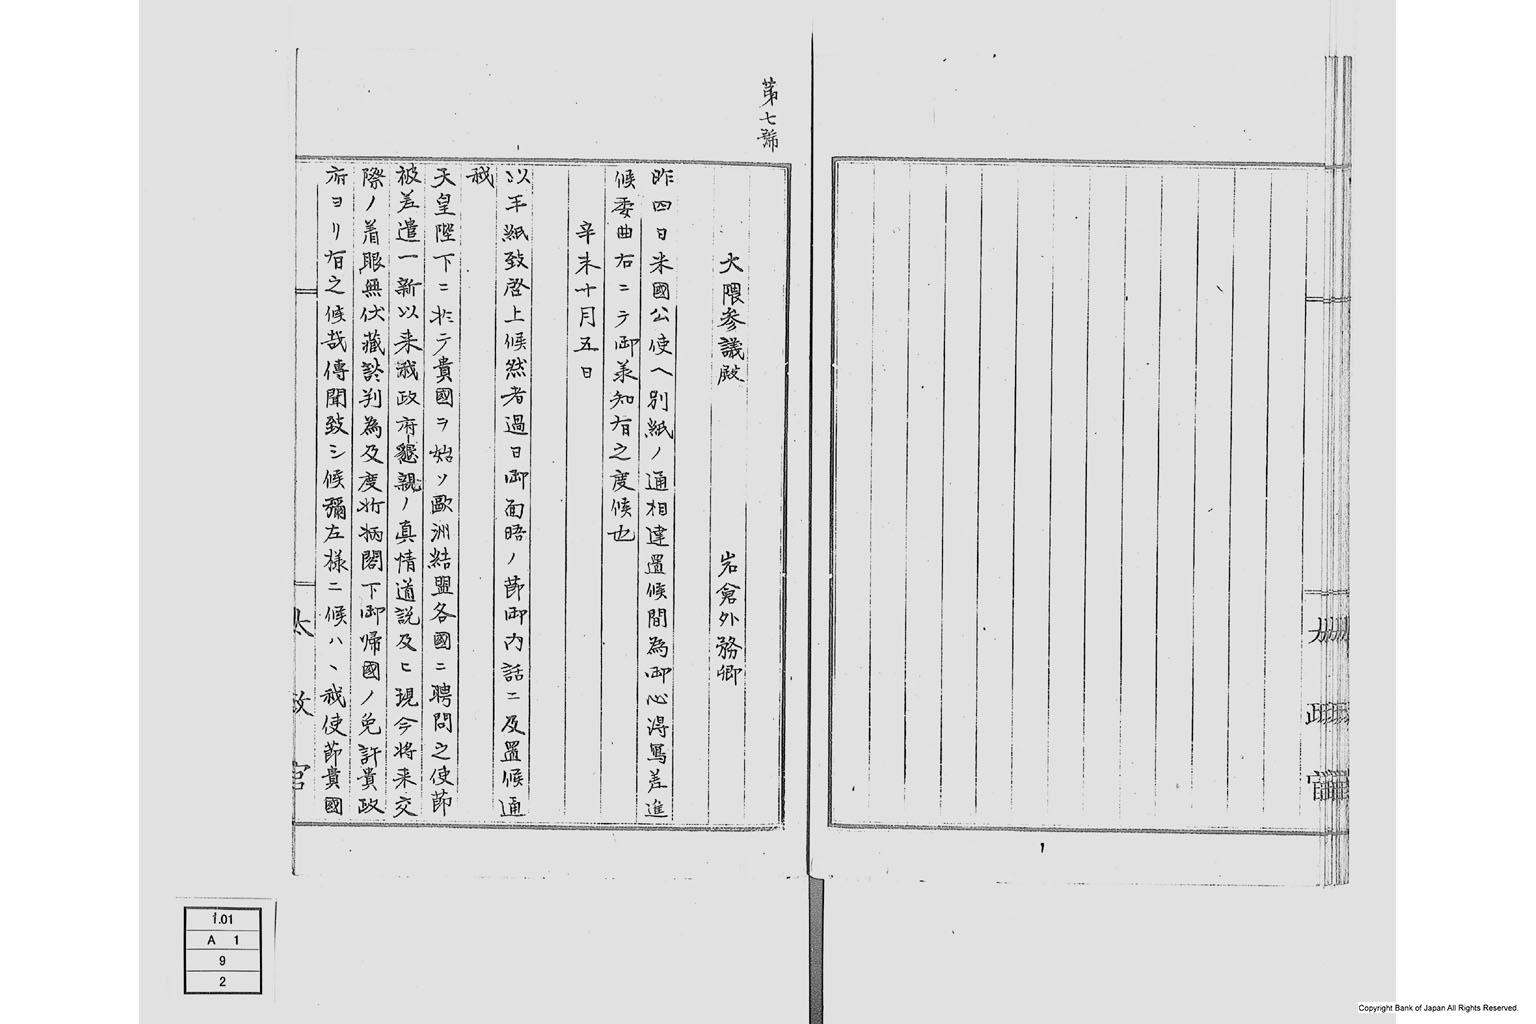 第七號
大隈参議殿 岩倉外務卿
昨四日米國公使ヘ別紙ノ通相達置候間為御心得寫差進
候委曲右ニテ御承知有之度候也
辛未十月五日
以手紙致啓上候然者過日御面晤ノ節御内話ニ及置候通
我
天皇陛下ニ於テ貴國ヲ始メ歐洲結盟各國ニ聘問之使節
被差遣一新以来我政府懇親ノ真情道説及ヒ現今将来交
際ノ着眼無伏藏談判為及度折柄閣下御帰國ノ免許貴政
府ヨリ有之候哉傳聞致シ候彌左様ニ候ハヽ我使節貴國
太政官
太政官
1.01
A 1
9
2
Copyright Bank of Japan All Rights Reserved.